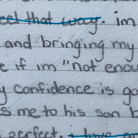 feel that way. im
and bringing my
e if im "not enou
y confidence is go
s me to his son
perfect. I have m